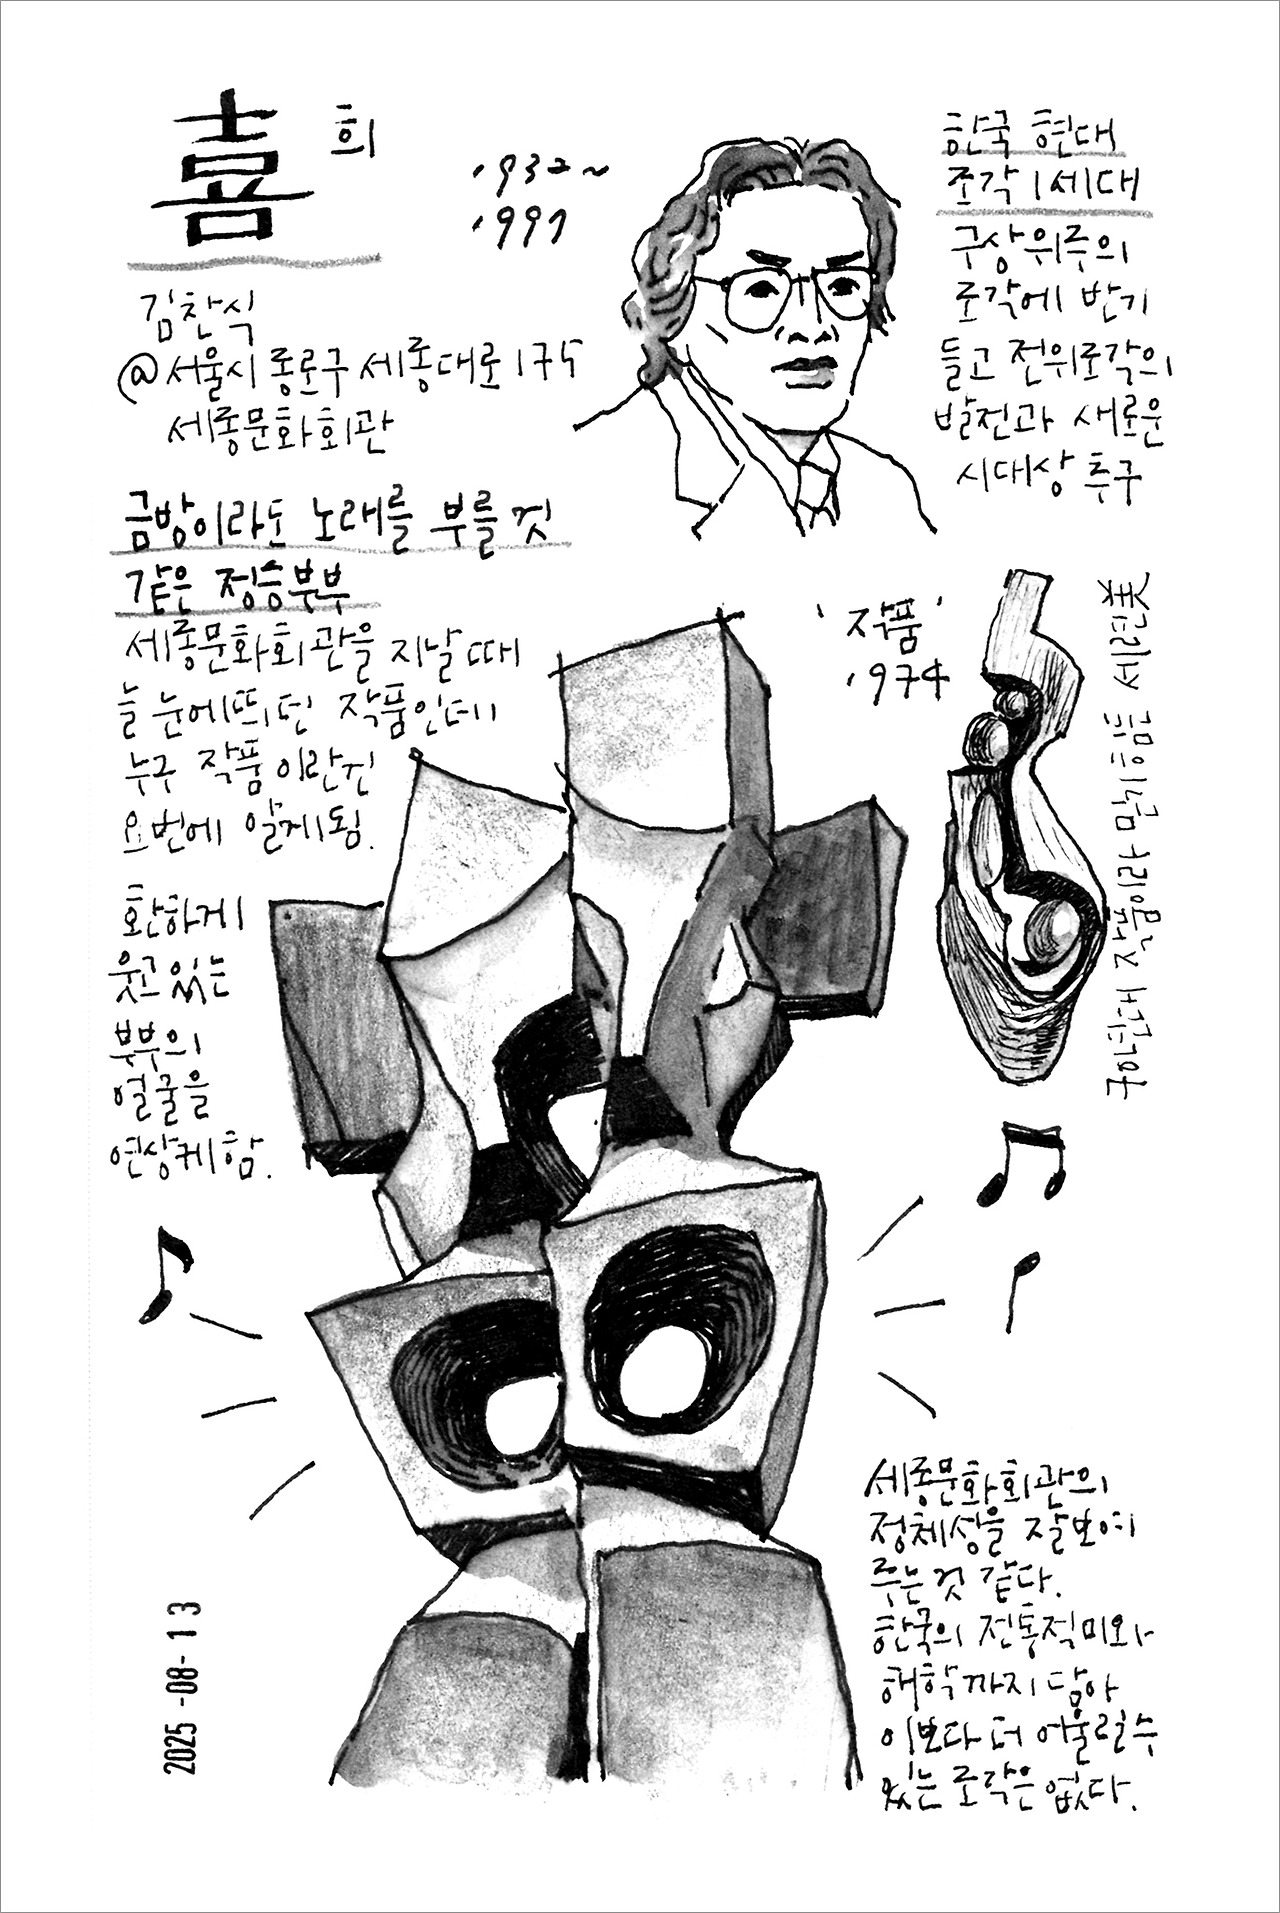 喜 희
1932~
1997
김찬식
@서울시 종로구 세종대로 175
세종문화회관
한국 현대
조각 1세대
구상위주의
조각에 반기
들고 전위조각의
발전과 새로운
시대상 추구
금방이라도 노래를 부를 것
같은 정승부부
세종문화회관을 지날 때
늘 눈에 띄던 작품인데
누구 작품이란 건
요번에 알게됨.
'작품'
1974
환하게
웃고 있는
부부의
얼굴을
연상케 함.
세종문화회관의
정체성을 잘 보여
주는 것 같다.
한국의 전통적 미와
해학까지 담아
이보다 더 어울릴 수
있는 조각은 없다.
2025-08-13